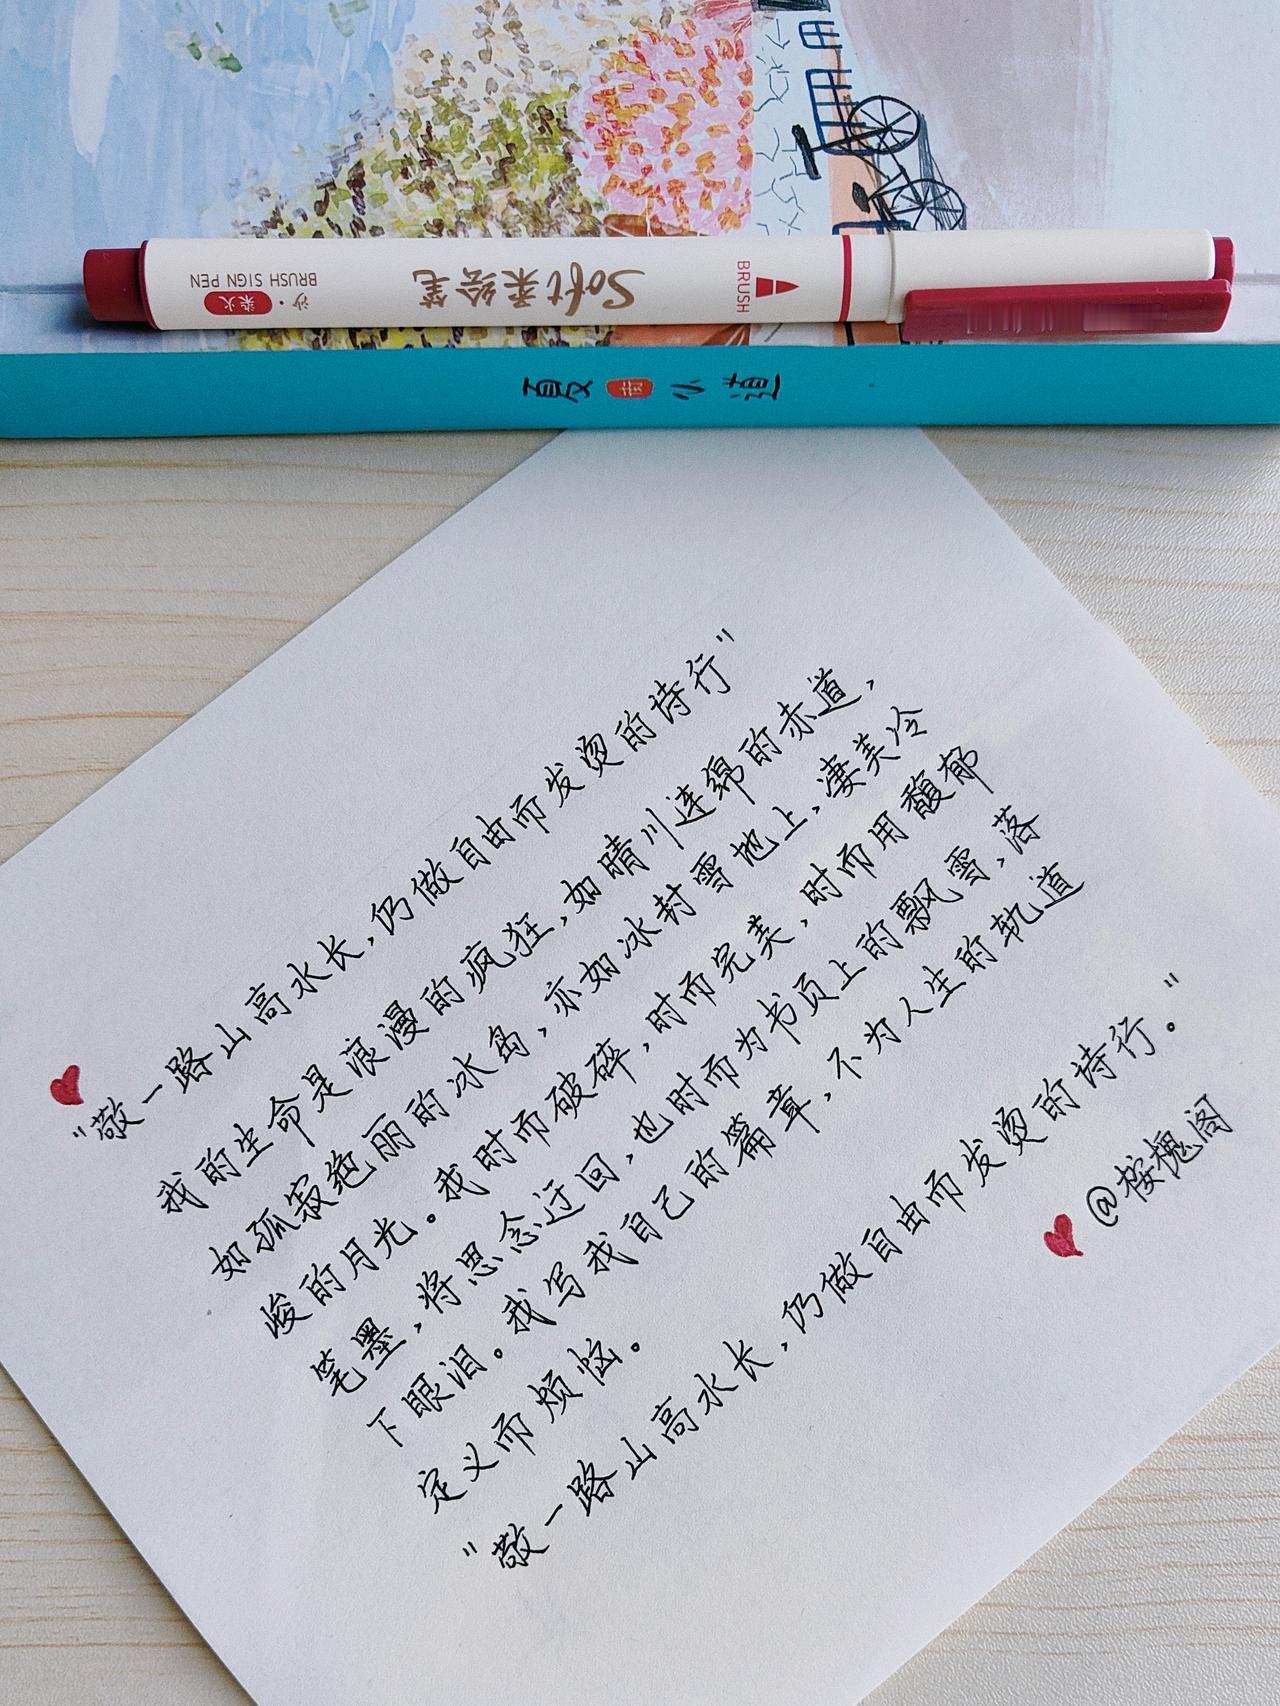 BRUSH SIGN PEN
染火·沙
Soft柔绘笔
BRUSH
夏街小道
“敬一路山高水长,仍做自由而发烫的诗行”
我的生命是浪漫的疯狂,如晴川连绵的赤道,
如孤寂绝丽的冰岛,亦如冰封雪地上,凄美冷
峻的月光。我时而破碎,时而完美,时而用馥郁
笔墨,将思念迂回,也时而为书页上的飘雪,落
下眼泪。我写我自己的篇章,不为人生的轨道
定义而烦恼。
“敬一路山高水长,仍做自由而发烫的诗行。”
@桉槐阁